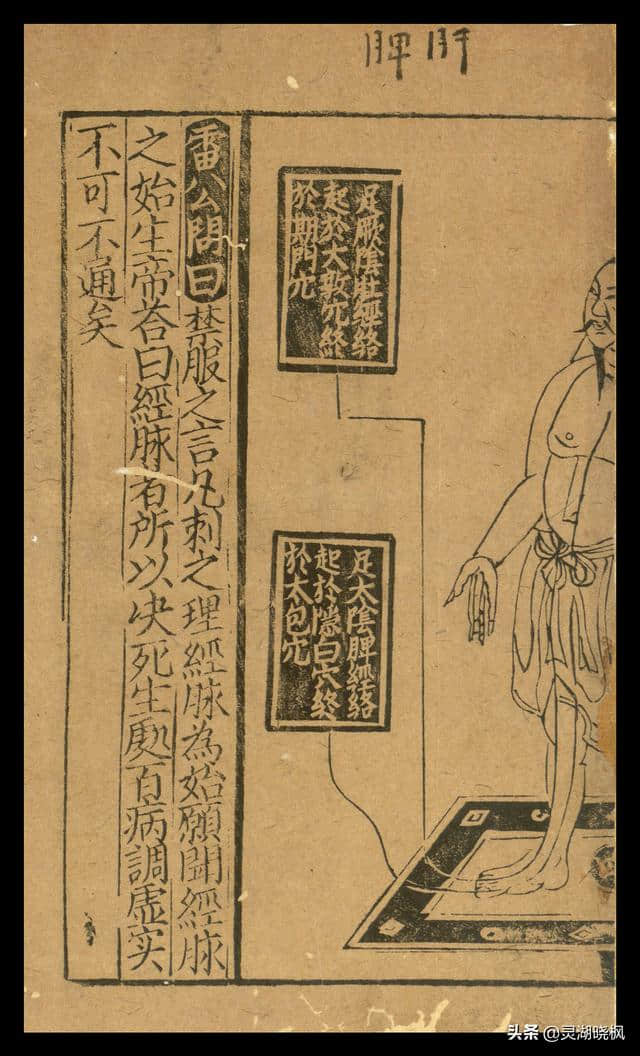 肝脾
足厥陰肝經絡
起於大敦穴終
於期門穴
足太陰脾經絡
起於隱白穴終
於太包穴
雷公問曰禁服之言凡刺之理經脉為始願聞經脉
之始生帝荅曰經脉者所以决死生處百病調虛实
不可不通矣
头条 @灵湖晓枫